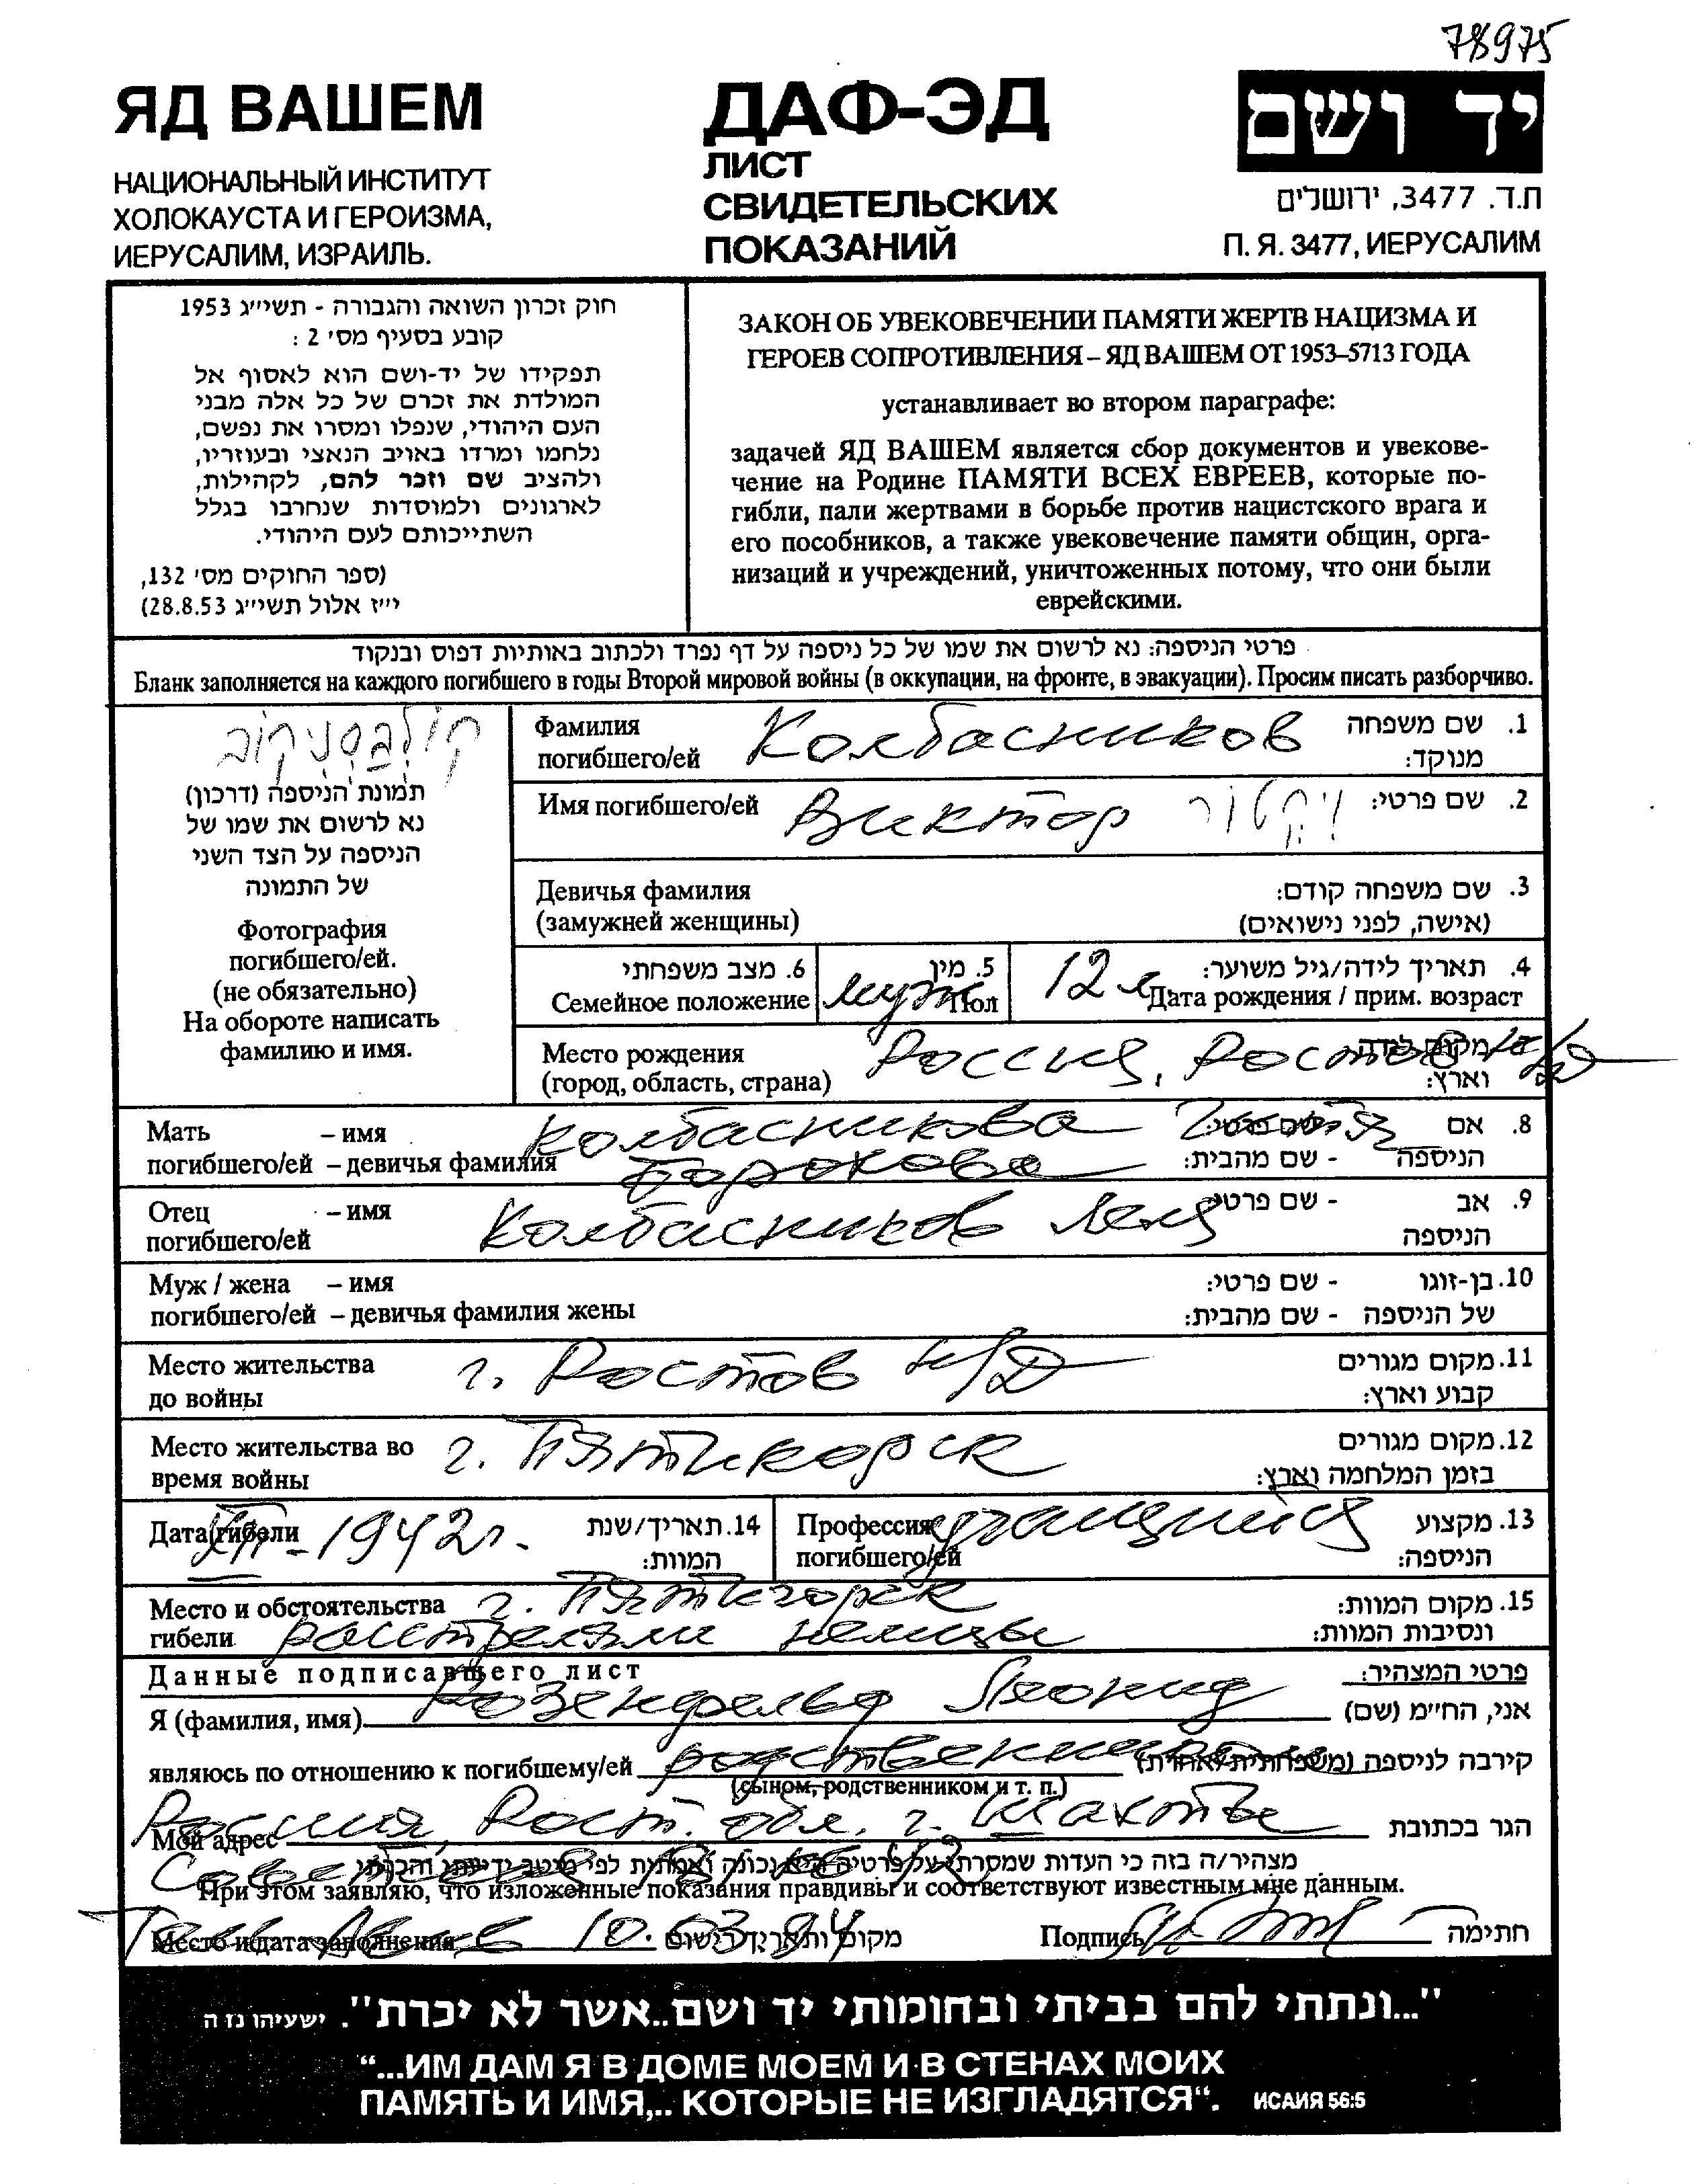 78975
ЯД ВАШЕМ
НАЦИОНАЛЬНЫЙ ИНСТИТУТ
ХОЛОКАУСТА И ГЕРОИЗМА,
ИЕРУСАЛИМ, ИЗРАИЛЬ.
ДАФ-ЭД
ЛИСТ
СВИДЕТЕЛЬСКИХ
ПОКАЗАНИЙ
יד ושם
ת.ד. 3477, ירושלים
П. Я. 3477, ИЕРУСАЛИМ
חוק זכרון השואה והגבורה - תשי״ג 1953
קובע בסעיף מס׳ 2 :
תפקידו של יד-ושם הוא לאסוף אל
המולדת את זכרם של כל אלה מבני
העם היהודי, שנפלו ומסרו את נפשם,
נלחמו ומרדו באויב הנאצי ובעוזריו,
ולהציב שם וזכר להם, לקהילות,
לארגונים ולמוסדות שנחרבו בגלל
השתייכותם לעם היהודי.
(ספר החוקים מס׳ 132,
י״ז אלול תשי״ג 28.8.53)
ЗАКОН ОБ УВЕКОВЕЧЕНИИ ПАМЯТИ ЖЕРТВ НАЦИЗМА И
ГЕРОЕВ СОПРОТИВЛЕНИЯ – ЯД ВАШЕМ ОТ 1953–5713 ГОДА
устанавливает во втором параграфе:
задачей ЯД ВАШЕМ является сбор документов и увекове-
чение на Родине ПАМЯТИ ВСЕХ ЕВРЕЕВ, которые по-
гибли, пали жертвами в борьбе против нацистского врага и
его пособников, а также увековечение памяти общин, орга-
низаций и учреждений, уничтоженных потому, что они были
еврейскими.
פרטי הניספה: נא לרשום את שמו של כל ניספה על דף נפרד ולכתוב באותיות דפוס ובנקוד
Бланк заполняется на каждого погибшего в годы Второй мировой войны (в оккупации, на фронте, в эвакуации). Просим писать разборчиво.
קולבסניקוב
תמונת הניספה (דרכון)
נא לרשום את שמו של
הניספה על הצד השני
של התמונה
Фотография
погибшего/ей.
(не обязательно)
На обороте написать
фамилию и имя.
Фамилия погибшего/ей Колбасников 1. שם משפחה מנוקד:
Имя погибшего/ей Виктор ויקטור 2. שם פרטי:
Девичья фамилия 3. שם משפחה קודם:
(замужней женщины) (אישה, לפני נישואים)
6. מצב משפחתי 5. מין 4. תאריך לידה/גיל משוער:
Семейное положение муж Пол 12 л Дата рождения / прим. возраст
Место рождения Россия, Ростов н/Д 7. מקום לידה
(город, область, страна) וארץ:
Мать – имя Колбасникова 8. אם - שם פרטי:
погибшего/ей – девичья фамилия Борохова הניספה - שם מהבית:
Отец – имя Колбасников 9. אב - שם פרטי
погибшего/ей הניספה
Муж / жена – имя 10. בן-זוגו - שם פרטי:
погибшего/ей – девичья фамилия жены של הניספה - שם מהבית:
Место жительства г. Ростов н/Д 11. מקום מגורים
до войны קבוע וארץ:
Место жительства во г. Пятикорск 12. מקום מגורים
время войны בזמן המלחמה וארץ:
Дата гибели XII - 1942 г. 14. תאריך/שנת המוות:
Профессия погибшего/ей учащийся 13. מקצוע הניספה:
Место и обстоятельства г. Пятигорск 15. מקום המוות:
гибели расстреляли немцы ונסיבות המוות:
Данные подписавшего лист פרטי המצהיר:
Я (фамилия, имя) Розенфельд Леонид אני, הח״מ (שם)
являюсь по отношению к погибшему/ей родственником קירבה לניספה (משפחתית/אחרת)
(сыном, родственником и т. п.)
Мой адрес Россия, Рост. обл. г. Шахты הגר בכתובת
מצהיר/ה בזה כי העדות שמסרתי על פרטיה היא נכונה ואמתית לפי מיטב ידיעתי והכרתי.
При этом заявляю, что изложенные показания правдивы и соответствуют известным мне данным.
Место и дата заполнения 10.03.94 מקום ותאריך רישום Подпись חתימה
"...ונתתי להם בביתי ובחומותי יד ושם..אשר לא יכרת". ישעיהו נז ה
“...ИМ ДАМ Я В ДОМЕ МОЕМ И В СТЕНАХ МОИХ
ПАМЯТЬ И ИМЯ,.. КОТОРЫЕ НЕ ИЗГЛАДЯТСЯ“. ИСАИЯ 56:5